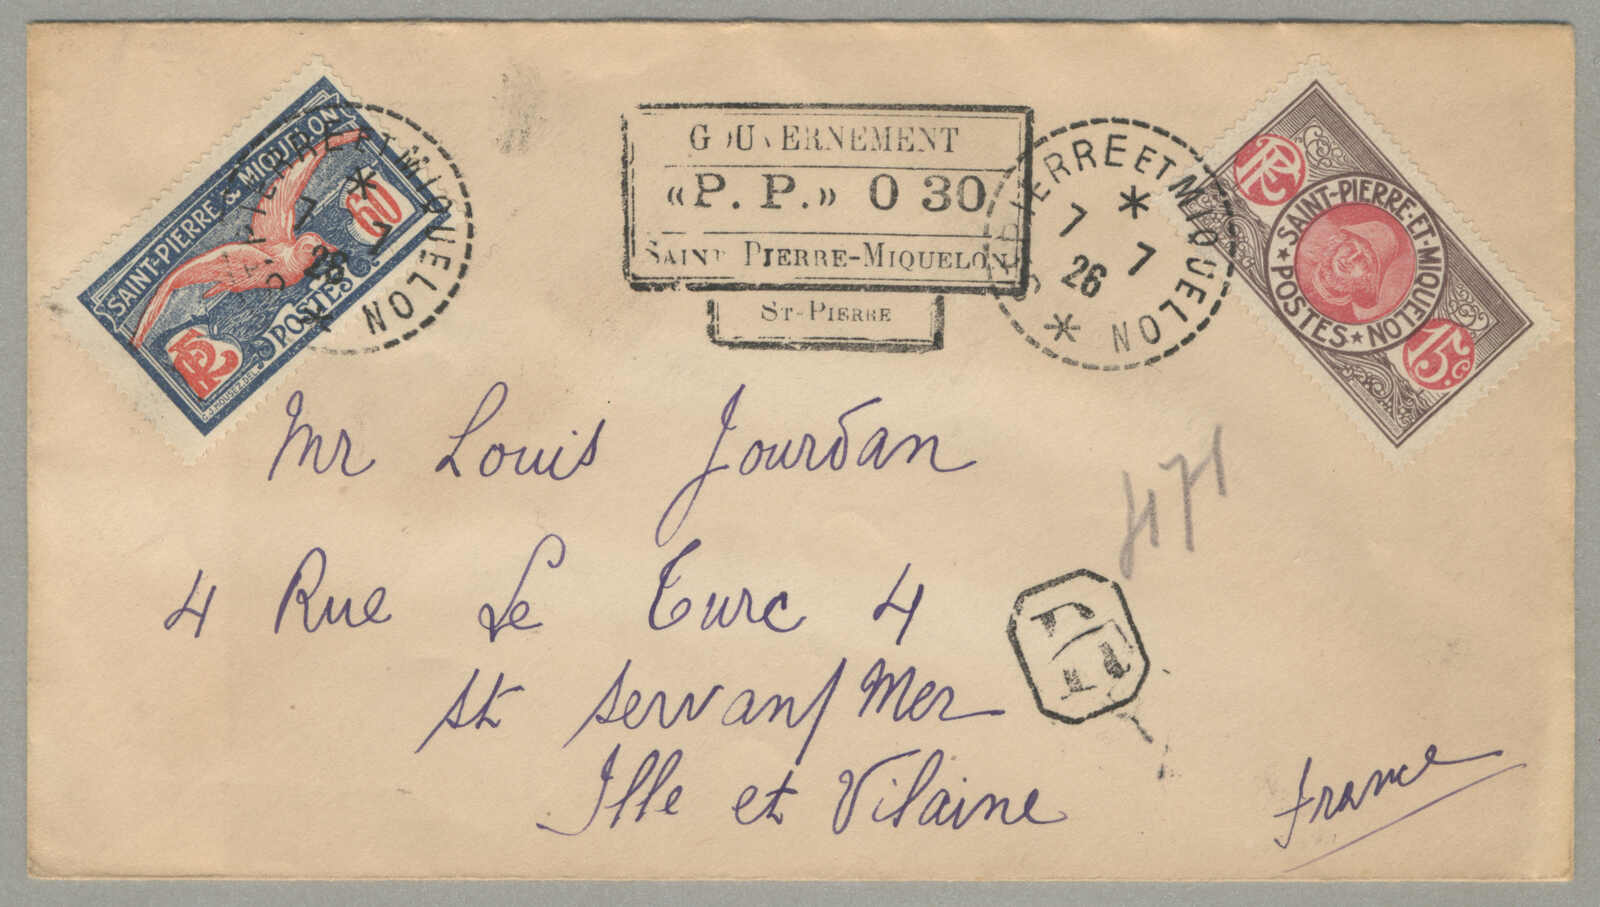 SAINT-PIERRE & MIQUELON
60
POSTES
RF
C.J. ROUGEZ. DEL.
PIERRE ET MIQUELON
7
7
26
GOUVERNEMENT
«P. P.» 0 30
SAINT PIERRE-MIQUELON
ST-PIERRE
ST PIERRE ET MIQUELON
7
7
26
RF
SAINT-PIERRE-ET-MIQUELON
POSTES
15c.
Mr Louis Jourdan
4 Rue Le Turc 4
St Servan s/ Mer
Ille et Vilaine
France
471
R